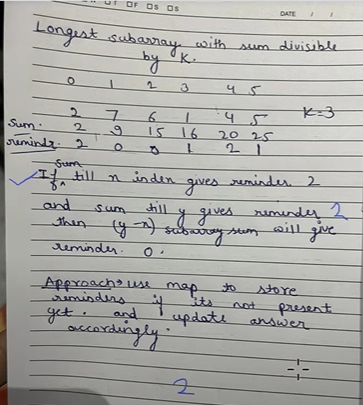 DATE / /
Longest subarray with sum divisible
by K.
0 1 2 3 4 5
2 7 6 1 4 5 K=3
sum. 2 9 15 16 20 25
remindr. 2 0 0 1 2 1
sum
If ^ till x index gives reminder 2
and sum till y gives reminder 2
then (y-x) subarray sum will give
reminder 0.
Approach → use map to store
reminders if its not present
yet. and update answer
accordingly.
2